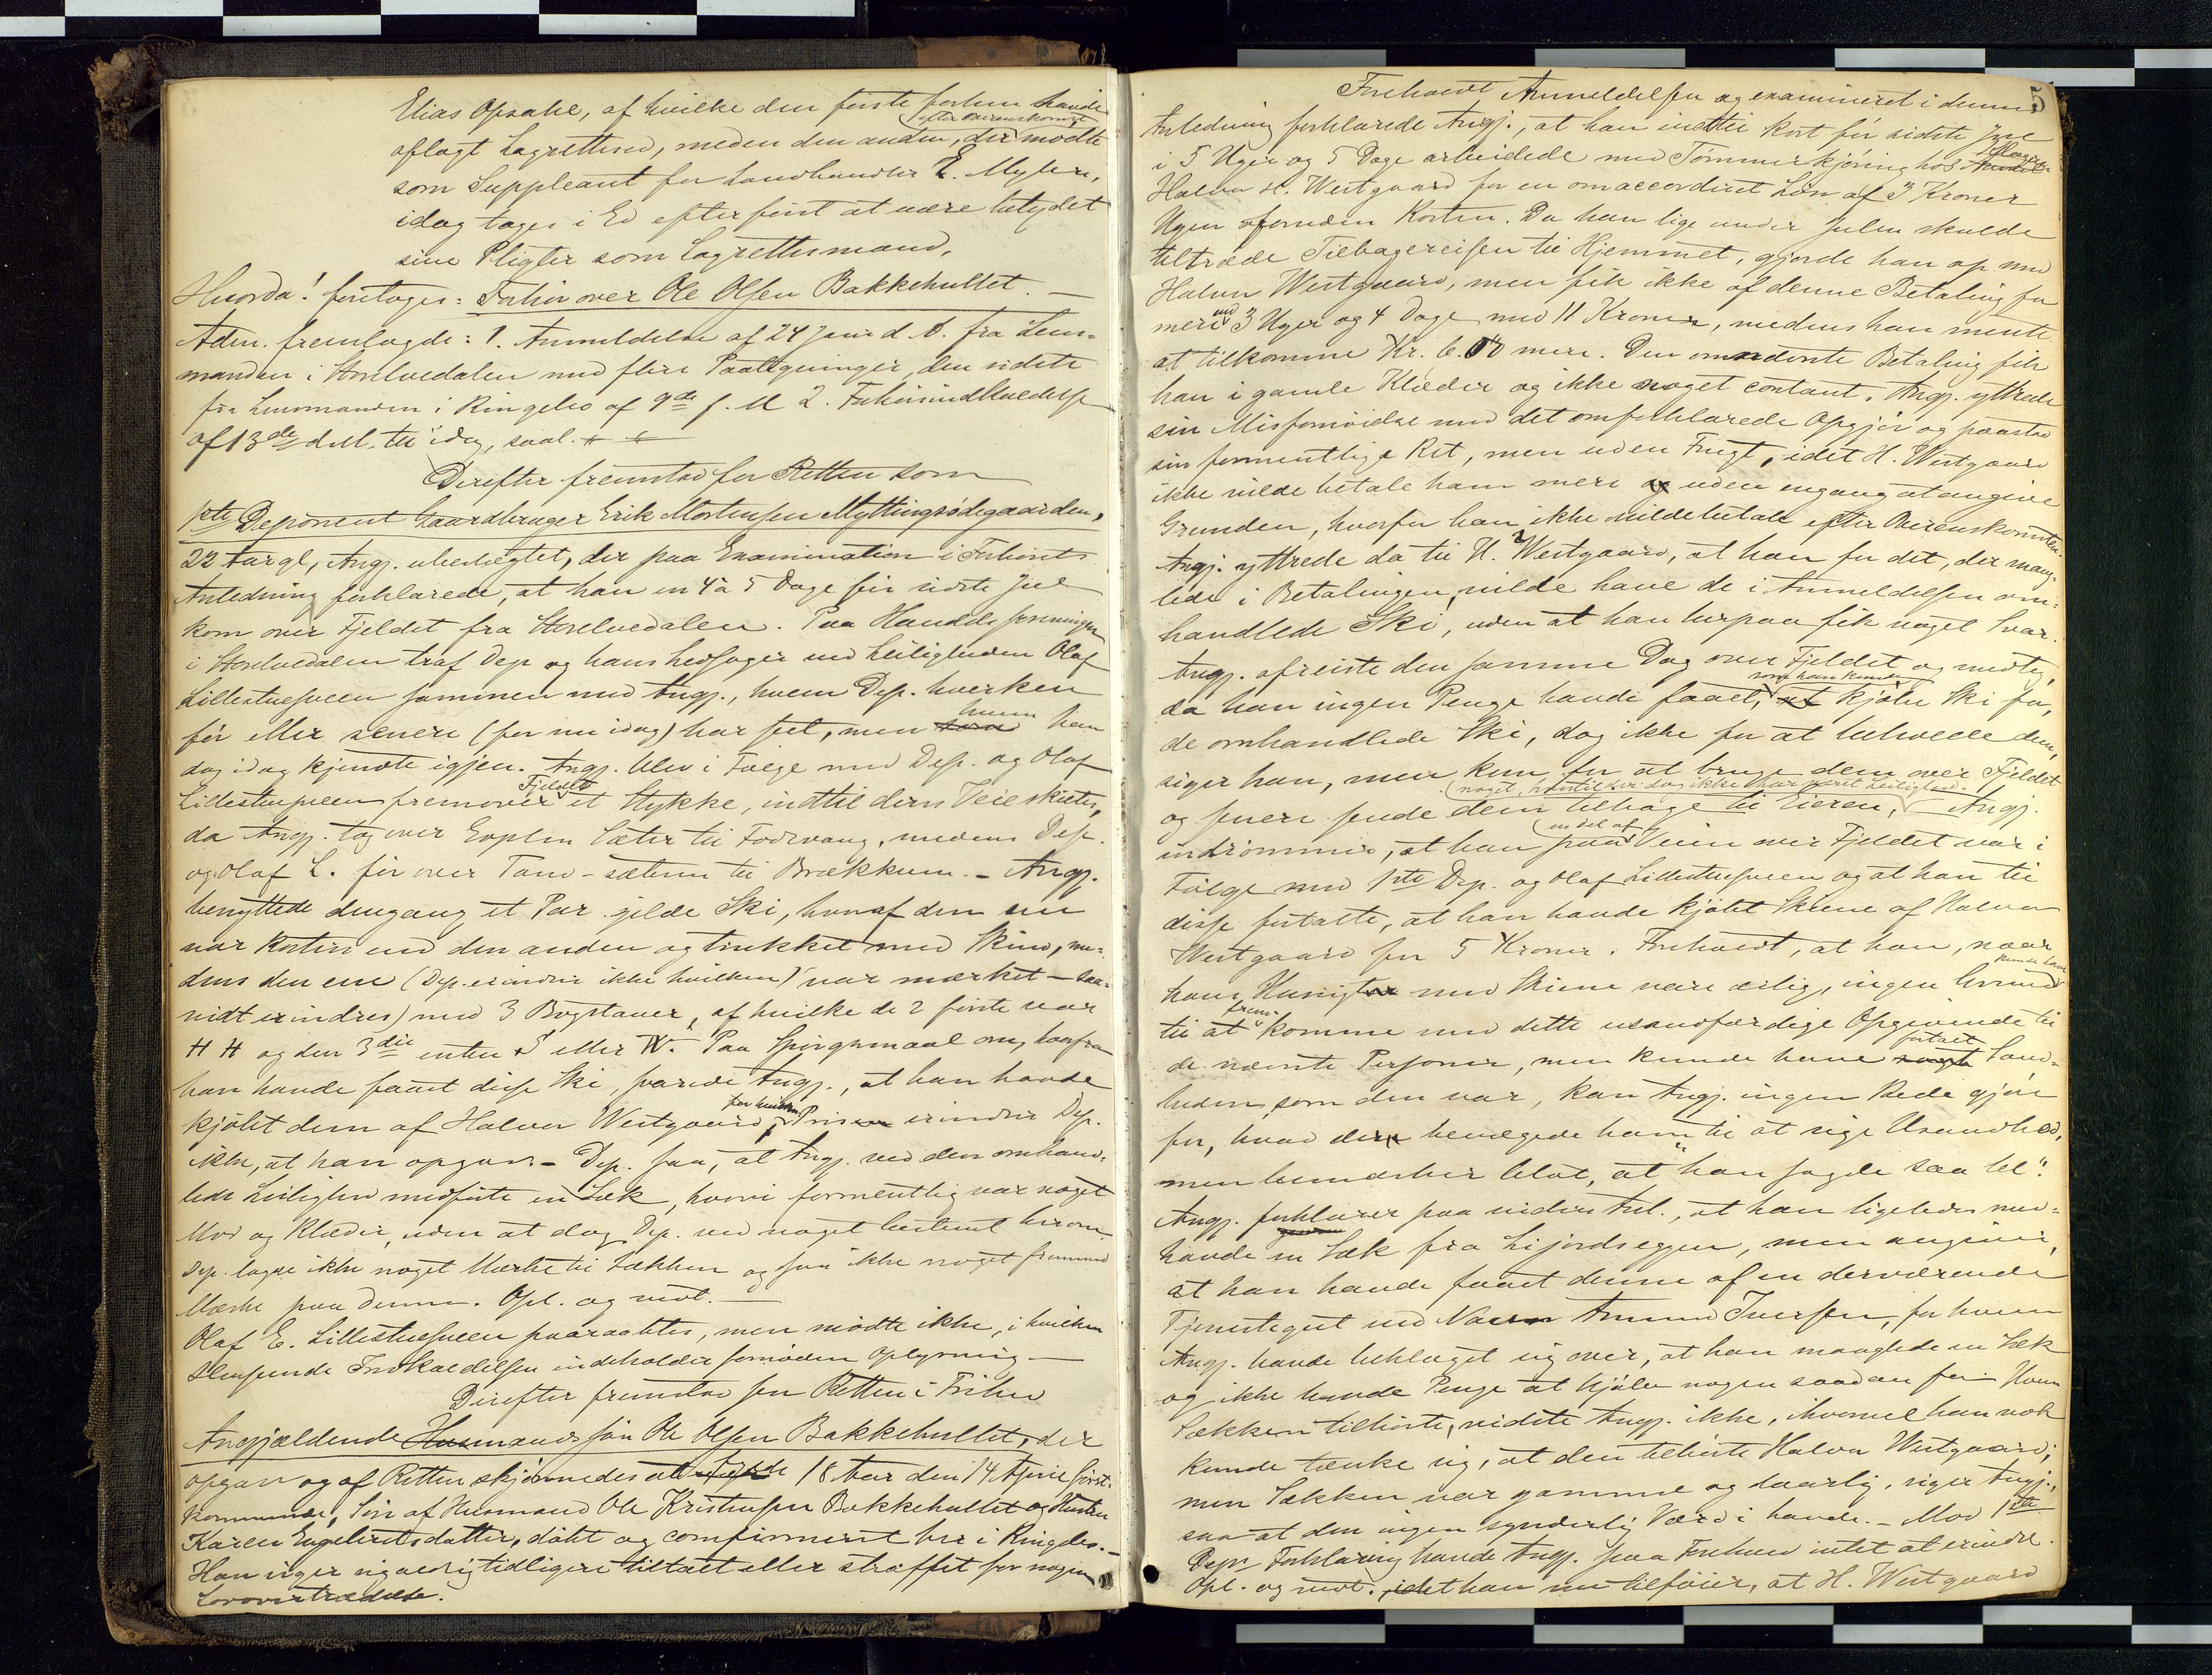 Elias Opsahl, af hvilke den første forhen havde
aflagt Lagretteed, meden den anden, der efter Overenskomst mødte
som Suppleant for Landhandler E. Myhre,
idag tages i Ed efter først at være betydet
sine Pligter som Lagrettesmand.
Hvorda! foretoges: Forhør over Ole Olsen Bakkehullet. —
Aden. fremlagde: 1. Anmeldelse af 24 Januar d. A. fra Lens-
manden i Storelvedalen med flere Paategninger, den sidste
fra Lensmanden i Ringebo af 9de f. M. 2. Forhørsindkaldelse
af 13de d. M. til idag, saal.
Derefter fremstod for Retten som
1ste Deponent Gaardbruger Erik Mortensen Myttingsødegaarden,
22 Aar gl, Angj. ubeslægtet, der paa Examination i Forhørets
Anledning forklarede, at han en 4 à 5 Dage før sidste Jul
kom over Fjeldet fra Storelvedalen. Paa
i Storelvedalen traf Dep. og hans ved Leiligheden Olaf
Lillestuesveen sammen med Angj., hvem Dep. hverken
før eller senere (før nu idag) har set, men som hvem han
dog idag kjendte igjen. Angj. blev i Følge med Dep. og Olaf
Lillestuesveen fremover Fjeldet et Stykke, indtil deres Veie skiltes,
da Angj. tog over Sæter til Fodvang, medens Dep.
og Olaf L. for over -sæteren til Brækkum. — Angj.
benyttede dengang et Par gilde Ski, hvoraf den ene
var kortere end den anden og trukket med Skind, me-
dens den ene (Dep. erindrer ikke hvilken) var mærket — saa-
vidt erindres) med 3 Bogstaver, af hvilke de 2 første var
H H og den 3die enten S eller W. Paa Spørgsmaal om, hvorfra
han havde faaet disse Ski, svarede Angj., at han havde
kjøbt dem af Halvor Westgaard, for hvilken Prisen erindrer Dep.
ikke, at han opgav. — Dep. saa, at Angj. ved den omhand-
lede Leilighed medførte en Sæk, hvori formentlig var noget
Mad og Klæder, uden at dog Dep. ved noget bestemt herom.
Dep. lagde ikke noget Mærke til Sækken og saa ikke noget fremmed
Mærke paa denne. Opl. og vedt. —
Olaf E. Lillestuesveen paaraabtes, men mødte ikke, i hvilken
Henseende Indkaldelsen indeholder fornøden Oplysning —
Derefter fremstod for Retten i Frihed
Angjældende Husmandssøn Ole Olsen Bakkehullet, der
opgav og af Retten skjønnedes at 18 Aar den 14 April først-
kommende, Søn af Husmand Ole Kristensen Bakkehullet og Hustru
Karen Engebretsdatter, døbt og confirmeret her i Ringebo. —
Han siger sig aldrig tidligere tiltalt eller straffet for nogen
Lovovertrædelse.
5
Foreholdt Anmeldelsen og examineret i denne
Anledning forklarede Angj., at han indtil kort før sidste Jul
i 5 Uger og 5 Dage arbeidede med Tømmerkjøring hos
Halvor H. Westgaard for en omaccorderet Løn af 3 Kroner
Ugen foruden Kosten. Da han lige under Julen skulde
tiltræde Tilbagereisen til Hjemmet, gjorde han op med
Halvor Westgaard, men fik ikke af denne Betaling for
mere end 3 Uger og 4 Dage med 11 Kroner, medens han mente
at tilkomme Kr. 6.00 mere. Den omrørte Betaling fik
han i gamle Klæder og ikke noget contant. Angj. yttrede
sin Misfornøielse med det omforklarede Opgjør og paastod
sin formentlige Ret, men uden Frugt, idet H. Westgaard
ikke vilde betale ham mere og uden engang at angive
Grunden, hvorfor han ikke vilde betale efter Overenskomsten.
Angj. yttrede da til H. Westgaard, at han for det, der mang-
lede i Betalingen, vilde have de i Anmeldelsen om-
handlede Ski, uden at han herpaa fik noget Svar.
Angj. afreiste den samme Dag over Fjeldet og medtog,
da han ingen Penge havde faaet, som han kunde kjøbe Ski for,
de omhandlede Ski, dog ikke for at beholde dem,
siger han, men kun for at bruge dem over Fjeldet
og senere sende dem tilbage til Eieren, noget, hvortil der dog ikke har været Leilighed. Angj.
indrømmer, at han paa en del af Veien over Fjeldet var i
Følge med 1ste Dep. og Olaf Lillestuesveen og at han til
disse fortalte, at han havde kjøbt Skiene af Halvor
Westgaard for 5 Kroner. Foreholdt, at han, naar
hans Hensigter med Skiene vare ærlig, ingen Grund kunde have
til at frem komme med dette usandfærdige Opgivende til
de nævnte Personer, men kunde have fortalt Sand-
heden som den var, kan Angj. ingen Rede gjøre
for, hvad der bevægede ham til at sige Usandhed,
men bemærker blot, at "han sagde saa til".
Angj. forklarer paa videre Anl., at han ligeledes med-
havde en Sæk fra Lijordseggen, men angiver,
at han havde faaet denne af en derværende
Tjenestegut ved Navn Amund Iversen, for hvem
Angj. havde beklaget sig over, at han manglede en Sæk
og ikke havde Penge at kjøbe nogen saadan for. Hvem
Sækken tilhørte, vidste Angj. ikke, ihvorvel han nok
kunde tænke sig, at den tilhørte Halvor Westgaard;
men Sækken var gammel og daarlig, siger Angj.,
saa at den ingen synderlig Værdi havde. — Mod 1ste
Deps Forklaring havde Angj. paa Forehold intet at erindre.
Opl. og vedt., idet han nu tilføier, at H. Westgaard